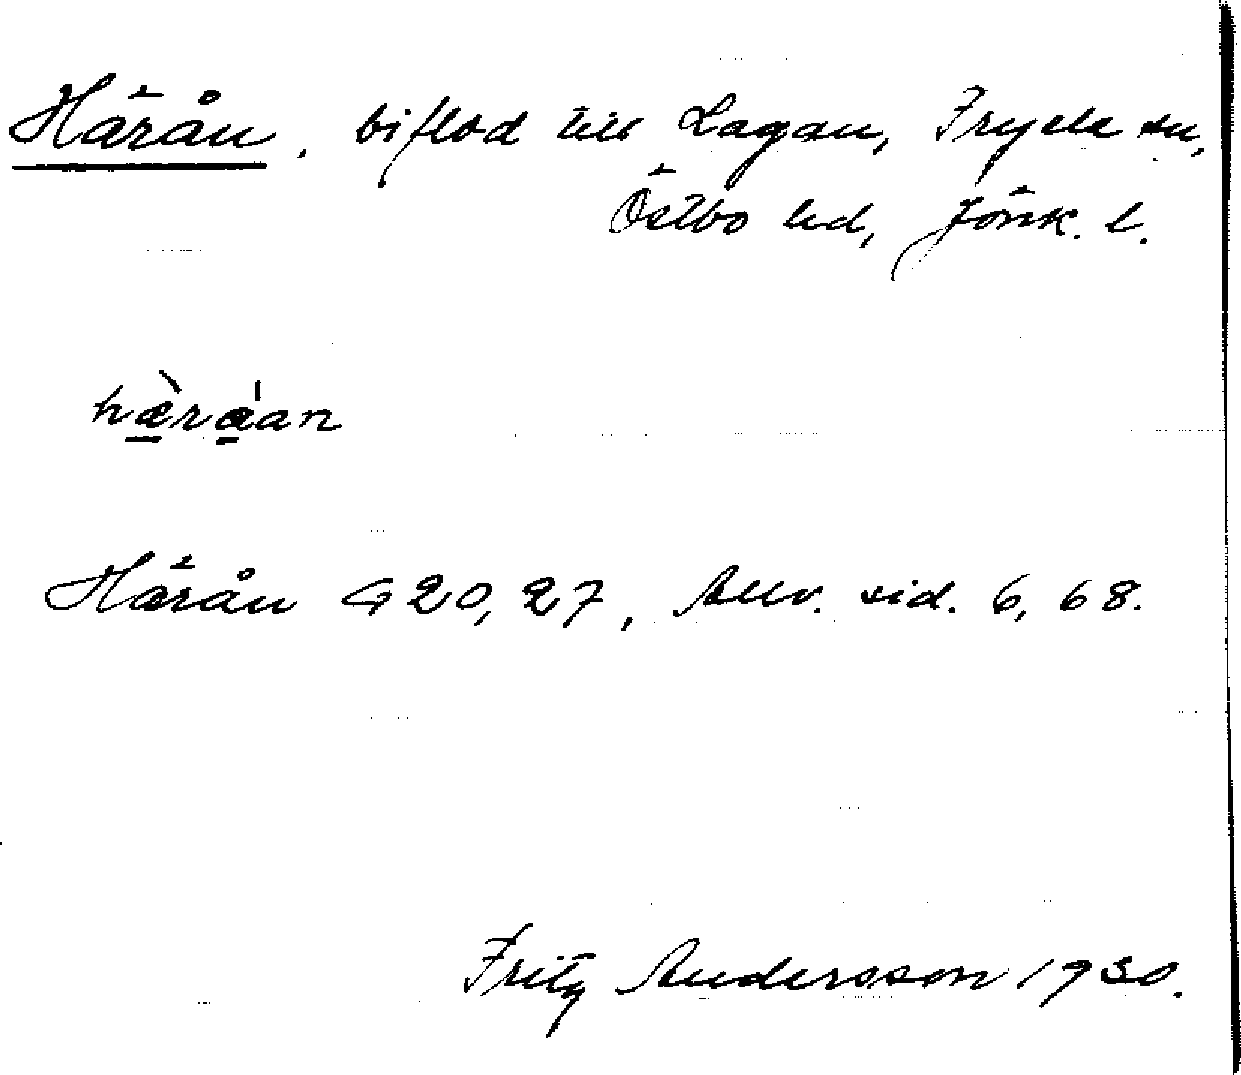 Härån, biflod till Lagan, Tryele sn,
Östbo hd, Jönk. l.
hæ̀ràan
Härån G 20, 27, Allv. sid. 6, 68.
Fritz Andersson 1930.